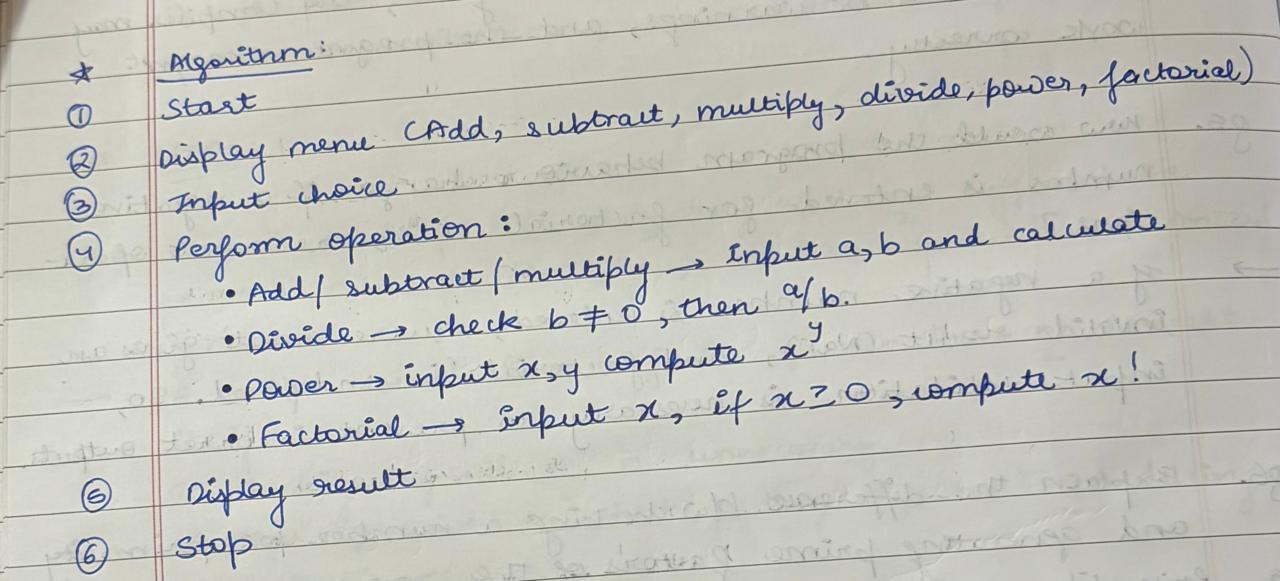 * Algorithm:
① Start
② Display menu (Add, subtract, multiply, divide, power, factorial)
③ Input choice
④ Perform operation:
• Add/ subtract/ multiply → input a, b and calculate
• Divide → check b ≠ 0, then a/b.
• Power → input x, y compute x^y
• Factorial → input x, if x ≥ 0, compute x!
⑤ Display result
⑥ Stop